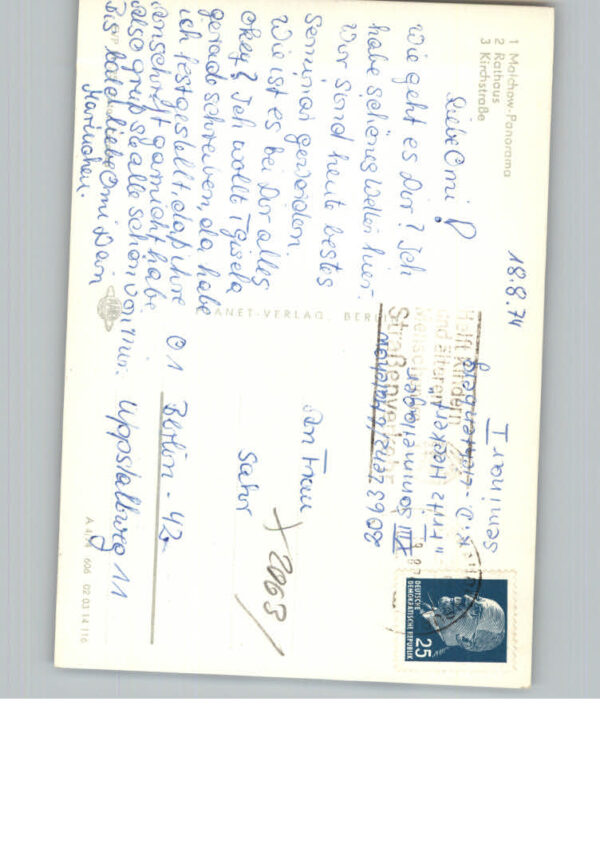 1 Malchow-Panorama
2 Rathaus
3 Kirchstraße
18.8.74
Liebe Omi!
Wie geht es Dir? Ich
habe schönes Wetter hier.
Wir sind heute bestes
Seminar geworden.
Wie ist es bei Dir alles
okey? Ich wollt Gisela
gerade schreiben, da habe
ich festgestellt, daß ihre
Anschrift garnicht habe.
also grüß alle schön von mir.
Bis bald liebe Omi Dein
Marinchen.
PLANET-VERLAG, BERLIN
Seminar I
"Fritz Heckert"
Sommerlager
Helft Kindern
und älteren
Straßenverkehr
DEUTSCHE
DEMOKRATISCHE REPUBLIK
25
An Frau
Sahr
X 2063
01 Berlin - 42
Uppstallweg 11
A 4/74 606 02 03 14/16